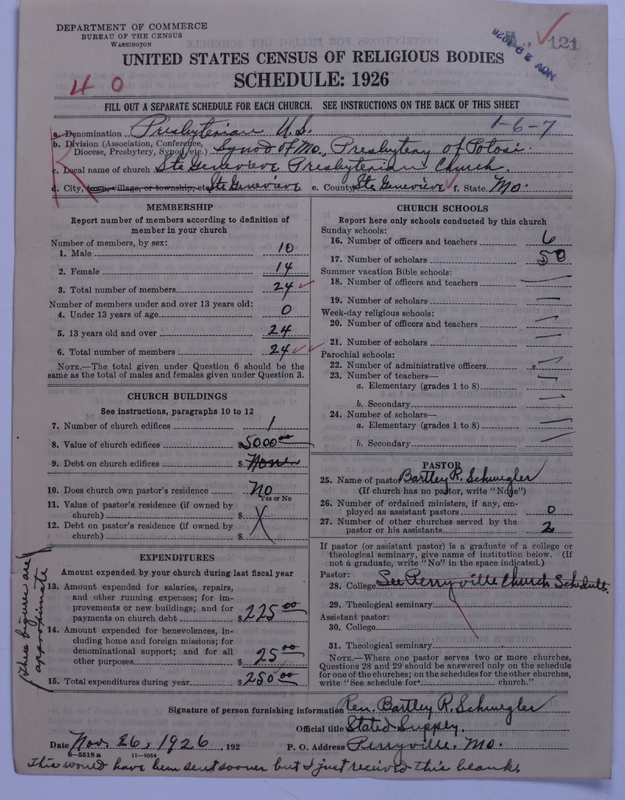 DEPARTMENT OF COMMERCE
BUREAU OF THE CENSUS
WASHINGTON
121
UNITED STATES CENSUS OF RELIGIOUS BODIES
SCHEDULE: 1926
4 0
FILL OUT A SEPARATE SCHEDULE FOR EACH CHURCH. SEE INSTRUCTIONS ON THE BACK OF THIS SHEET
1-6-7
a. Denomination Presbyterian U.S.
b. Division (Association, Conference, Diocese, Presbytery, Synod, etc.) Synod of Mo., Presbytery of Potosi
c. Local name of church Ste Genevieve Presbyterian Church.
d. City, town, village, or township, etc. Ste Genevieve e. County Ste Genevieve f. State Mo.
R
MEMBERSHIP
Report number of members according to definition of
member in your church
Number of members, by sex:
1. Male 10
2. Female 14
3. Total number of members 24
Number of members under and over 13 years old:
4. Under 13 years of age 0
5. 13 years old and over 24
6. Total number of members 24
NOTE.—The total given under Question 6 should be
same as the total of males and females given under Question 3.
CHURCH BUILDINGS
See instructions, paragraphs 10 to 12
7. Number of church edifices 1
8. Value of church edifices $5000 00
9. Debt on church edifices $ None
10. Does church own pastor's residence No
Yes or No
11. Value of pastor's residence (if owned by
church) $
12. Debt on pastor's residence (if owned by
church) $
EXPENDITURES
Amount expended by your church during last fiscal year
13. Amount expended for salaries, repairs,
and other running expenses; for im-
provements or new buildings; and for
payments on church debt $ 225 00
14. Amount expended for benevolences, in-
cluding home and foreign missions; for
denominational support; and for all
other purposes $ 25 00
15. Total expenditures during year $ 250 00
These figures are
approximate
CHURCH SCHOOLS
Report here only schools conducted by this church
Sunday schools:
16. Number of officers and teachers 6
17. Number of scholars 50
Summer vacation Bible schools:
18. Number of officers and teachers —
19. Number of scholars —
Week-day religious schools:
20. Number of officers and teachers —
21. Number of scholars —
Parochial schools:
22. Number of administrative officers —
23. Number of teachers—
a. Elementary (grades 1 to 8) —
b. Secondary —
24. Number of scholars—
a. Elementary (grades 1 to 8) —
b. Secondary —
PASTOR
25. Name of pastor Bartley R. Schwegler
(If church has no pastor, write "None")
26. Number of ordained ministers, if any, em-
ployed as assistant pastors 0
27. Number of other churches served by the
pastor or his assistants 2
If pastor (or assistant pastor) is a graduate of a college or
theological seminary, give name of institution below. (If
not a graduate, write "No" in the space indicated.)
Pastor:
28. College See Perryville Church Schedule.
29. Theological seminary
Assistant pastor:
30. College
31. Theological seminary
NOTE.—Where one pastor serves two or more churches,
Questions 28 and 29 should be answered only on the schedule
for one of the churches; on the schedules for the other churches,
write "See schedule for church."
Signature of person furnishing information Rev. Bartley R. Schwegler
Official title Stated Supply.
Date Nov. 26, 1926, 192 P. O. Address Perryville, Mo.
8—5518a 11—9054
This would have been sent sooner but I just received this blank.